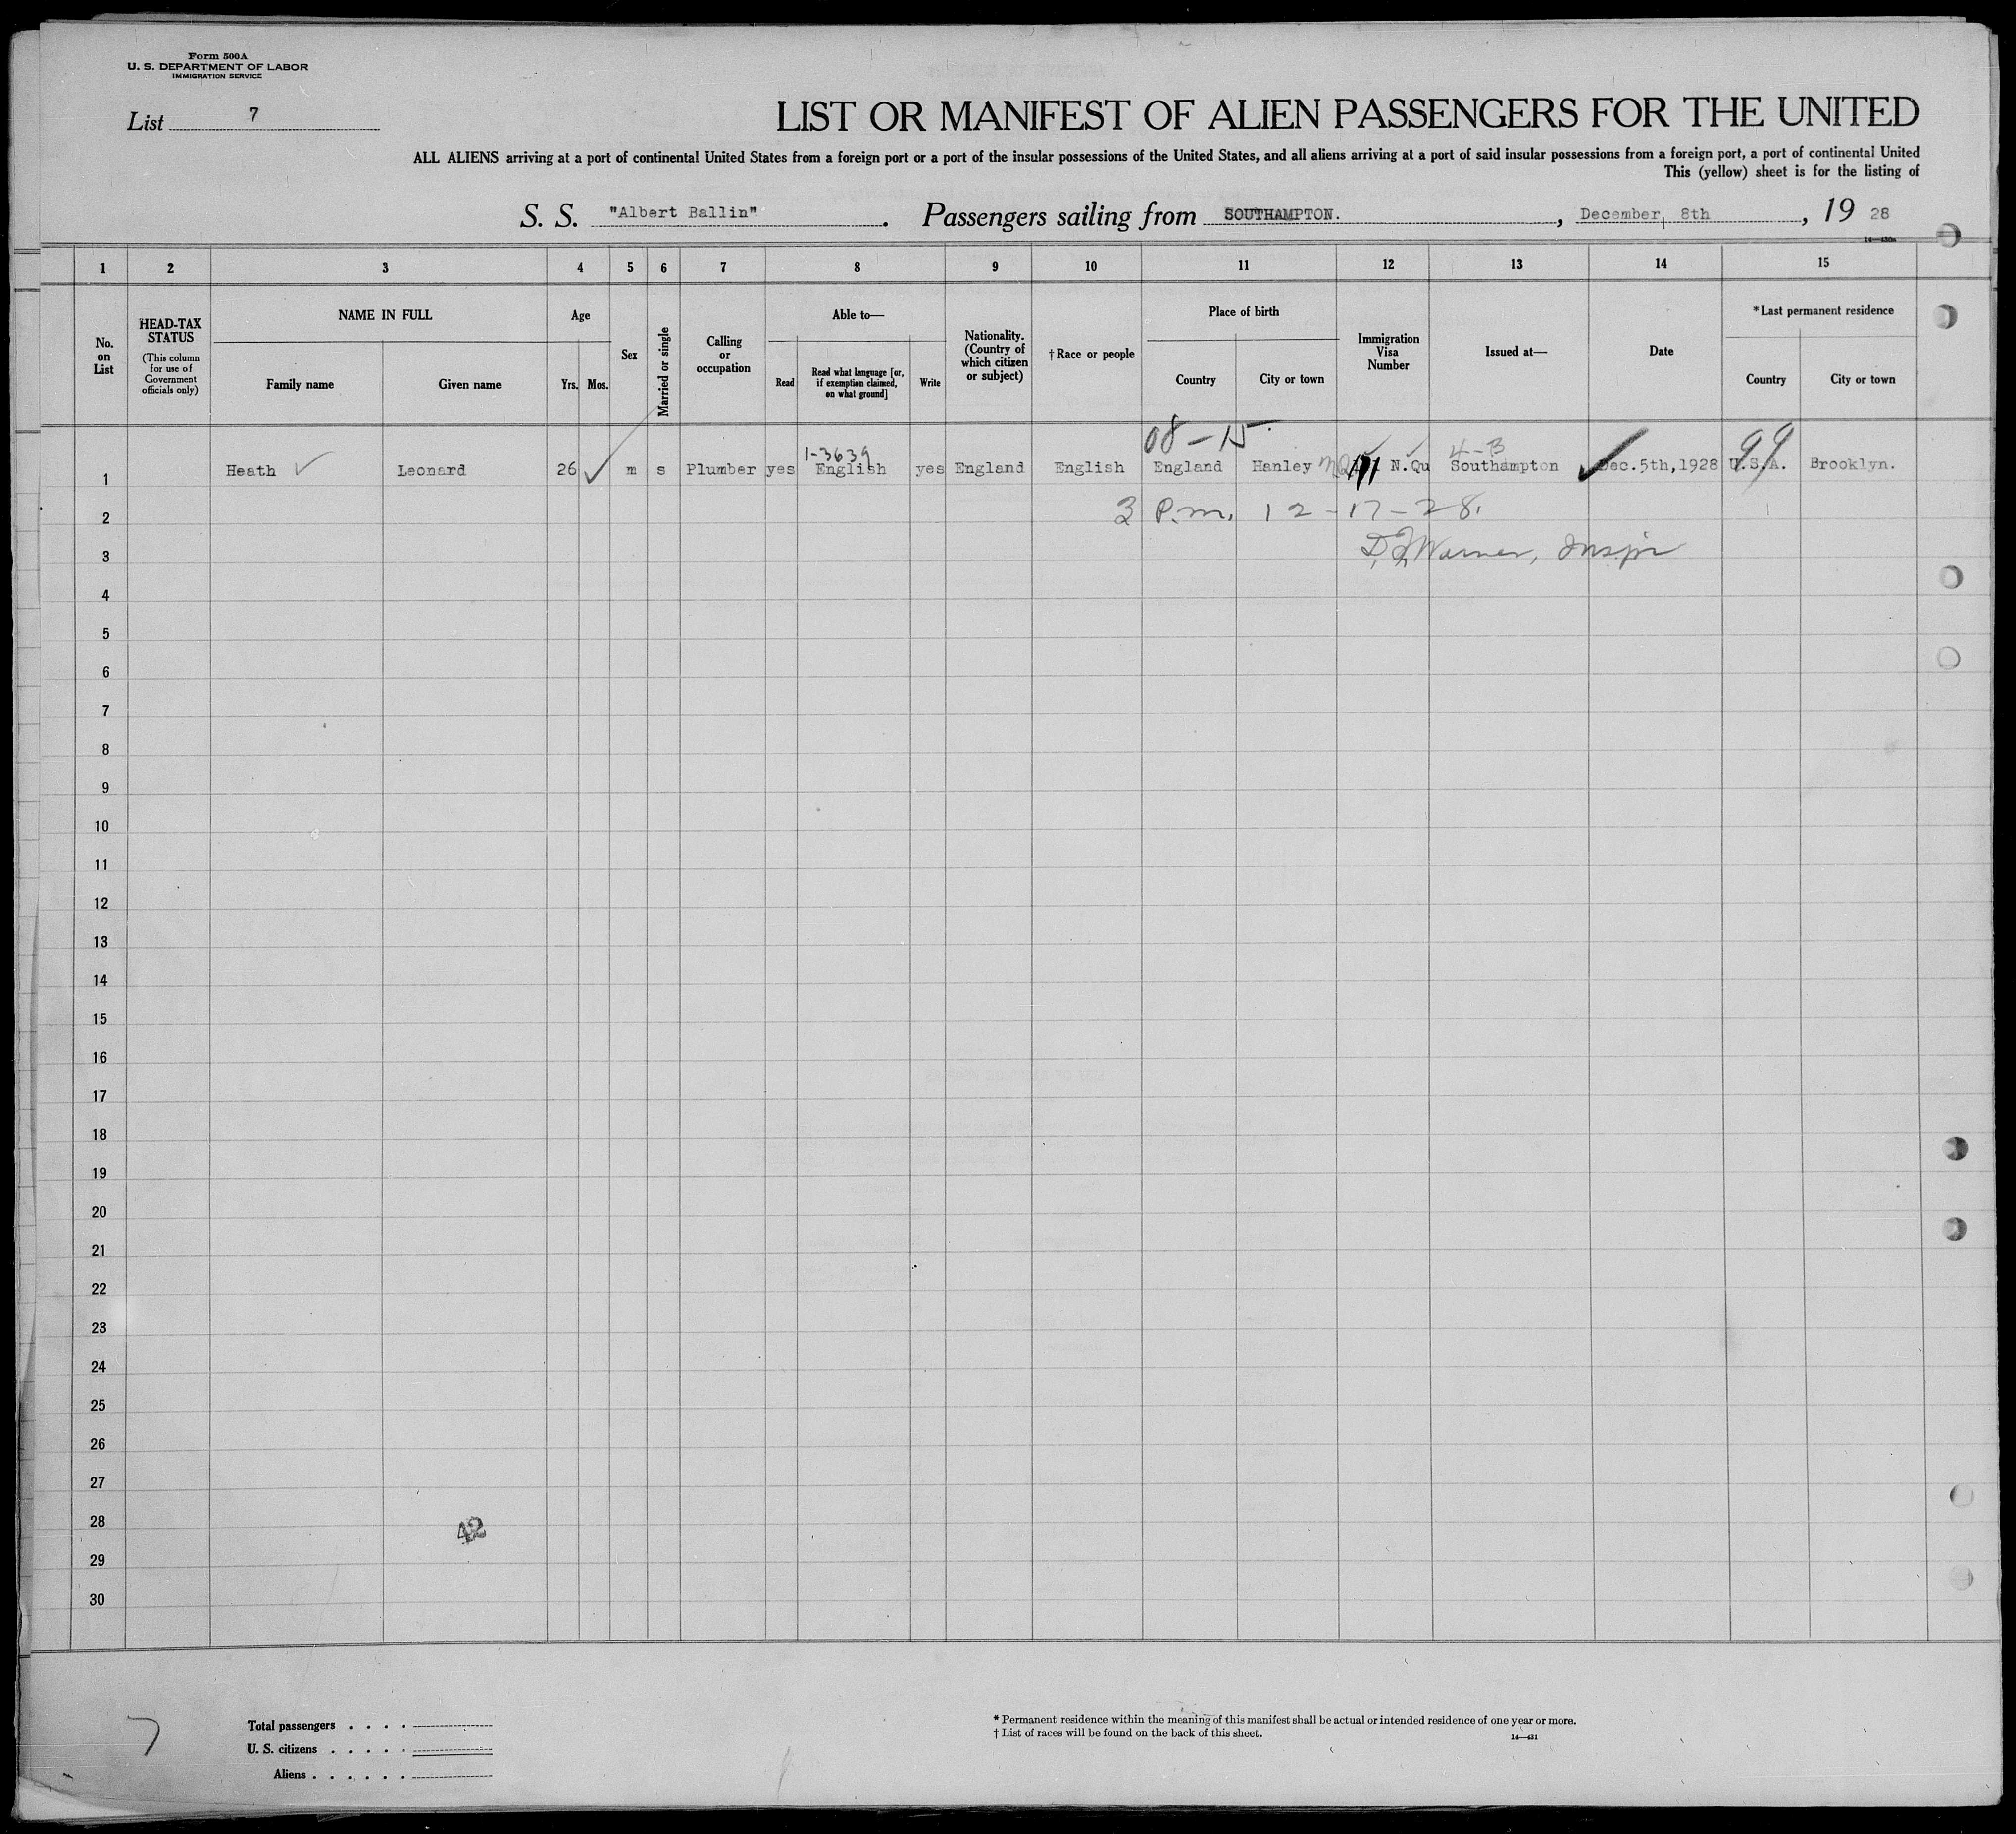 Form 500A
U. S. DEPARTMENT OF LABOR
IMMIGRATION SERVICE
List 7
LIST OR MANIFEST OF ALIEN PASSENGERS FOR THE UNITED
ALL ALIENS arriving at a port of continental United States from a foreign port or a port of the insular possessions of the United States, and all aliens arriving at a port of said insular possessions from a foreign port, a port of continental United
This (yellow) sheet is for the listing of
S. S. "Albert Ballin". Passengers sailing from SOUTHAMPTON., December, 8th, 19 28
14—430a
1 2 3 4 5 6 7 8 9 10 11 12 13 14 15
No. on List
HEAD-TAX STATUS
(This column for use of Government officials only)
NAME IN FULL
Family name Given name
Age
Yrs. Mos.
Sex
Married or single
Calling or occupation
Able to—
Read
Read what language [or, if exemption claimed, on what ground]
Write
Nationality. (Country of which citizen or subject)
† Race or people
Place of birth
Country City or town
Immigration Visa Number
Issued at—
Date
*Last permanent residence
Country City or town
08-15 4-B 99
1-3639
1 Heath Leonard 26 m s Plumber yes English yes England English England Hanley N.Qu Southampton Dec.5th,1928 U.S.A. Brooklyn.
2 3 P.m. 12-17-28.
3 D.F. Warner, Inspr
4
5
6
7
8
9
10
11
12
13
14
15
16
17
18
19
20
21
22
23
24
25
26
27
28
42
29
30
7
Total passengers . . . .
U. S. citizens . . . . .
Aliens . . . . . .
* Permanent residence within the meaning of this manifest shall be actual or intended residence of one year or more.
† List of races will be found on the back of this sheet.
14—431